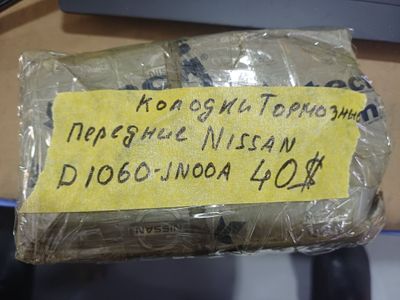 Колодки Тормозные
Передние NISSAN
D1060-JN00A 40$
NISSAN